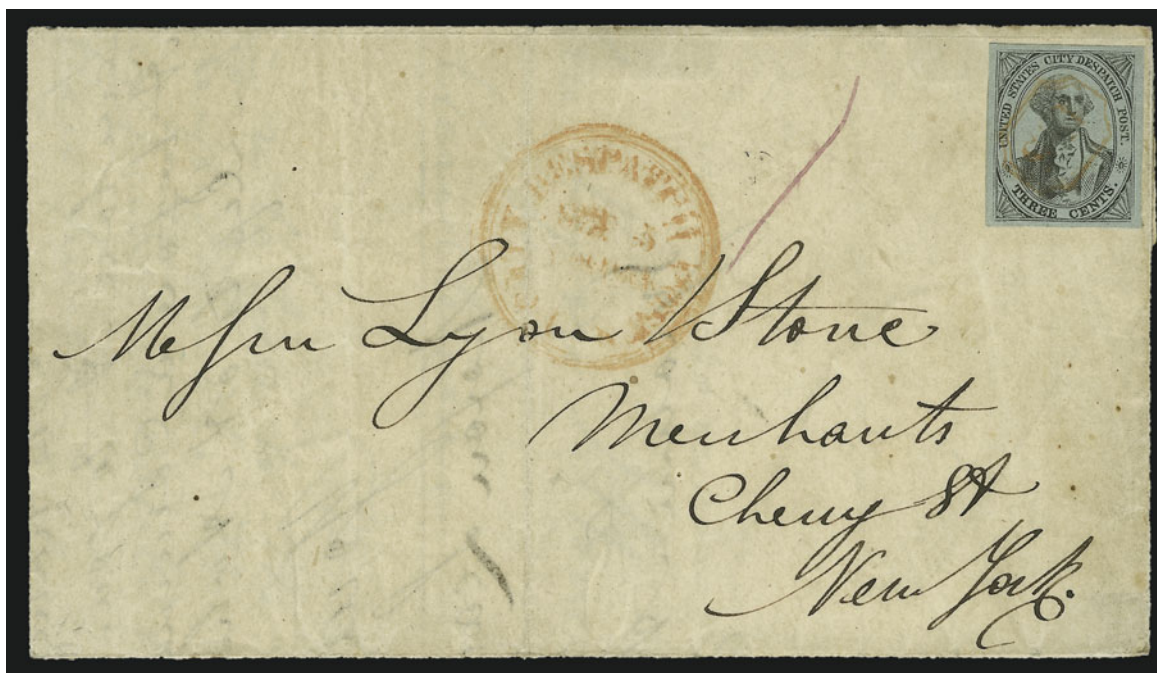 UNITED STATES CITY DESPATCH POST.
THREE CENTS.
CITY DESPATCH POST
Messrs Lyon / Stone
Merchants
Cherry St
New York.